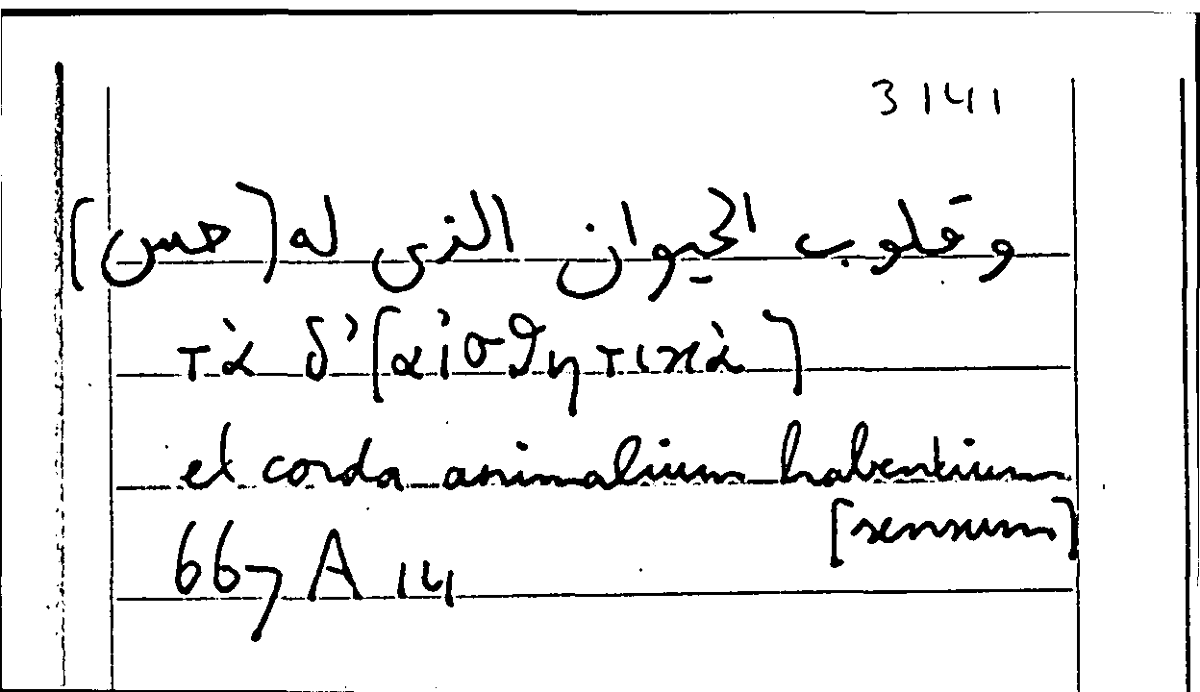 3141
وقلوب الحيوان الذى له [حس]
τὰ δ' [αἰσθητικὰ]
et corda animalium habentium
[sensum]
667 A 14